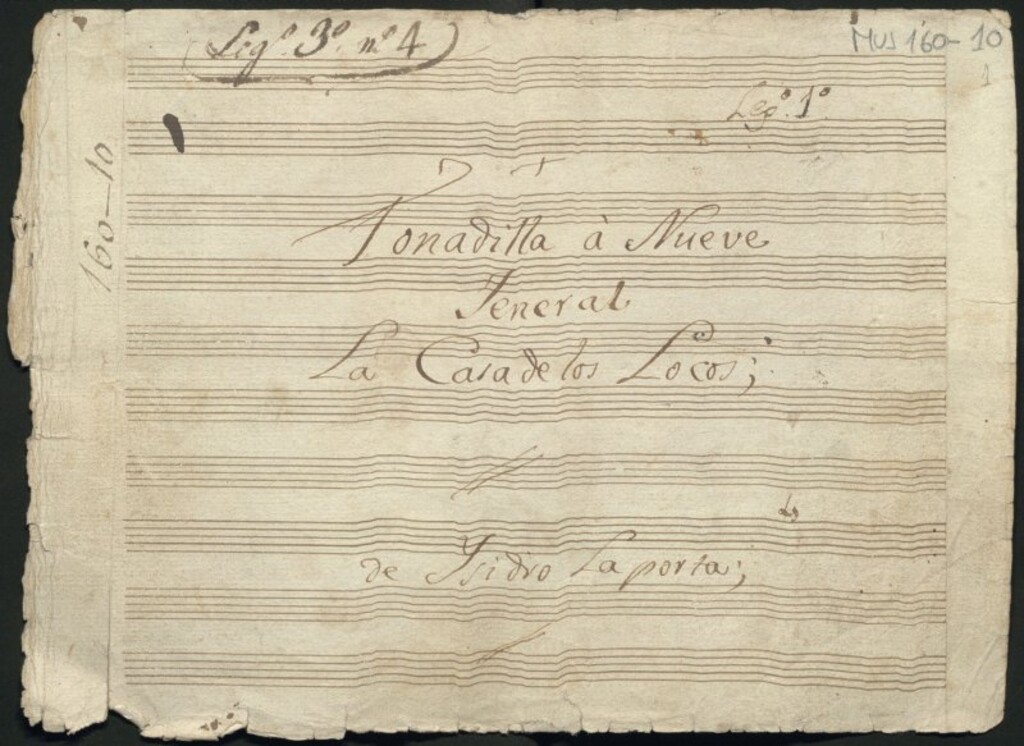 Legº. 3º. nº 4
Mus 160-10
1
Legº. 1º
160-10
Tonadilla à Nueve
Jeneral
La Casa de los Locos;
de Ysidro Laporta;